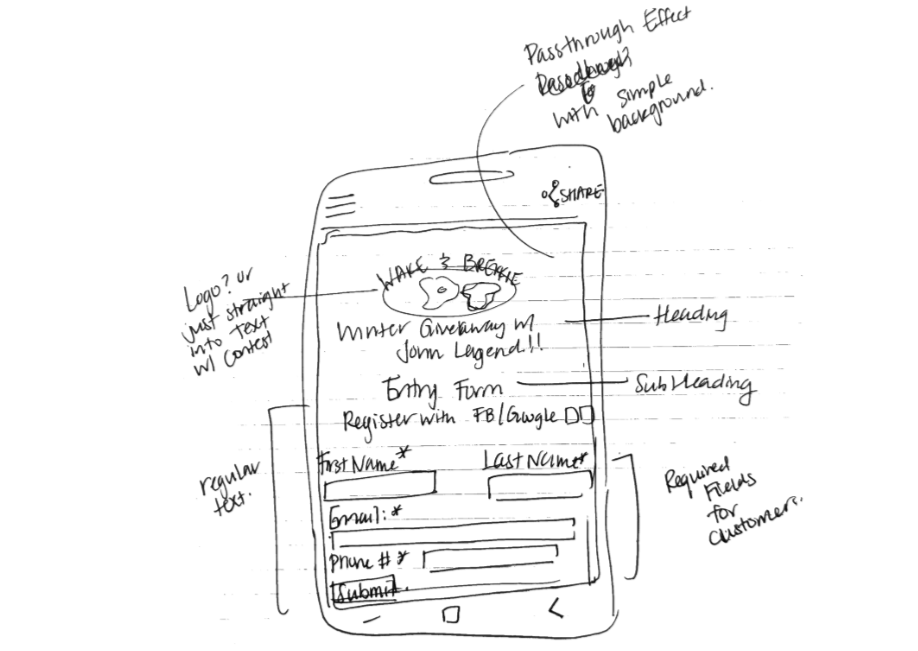 Passthrough Effect
with simple
background.
SHARE
WAKE & BREKKIE
Logo? or
just straight
into text
w/ contest
Winter Giveaway w/
John Legend!!
Heading
Entry Form
SubHeading
Register with FB/Google
regular
text.
First Name*
Last Name*
Required
Fields
for
Customers.
Email: *
Phone # *
Submit.